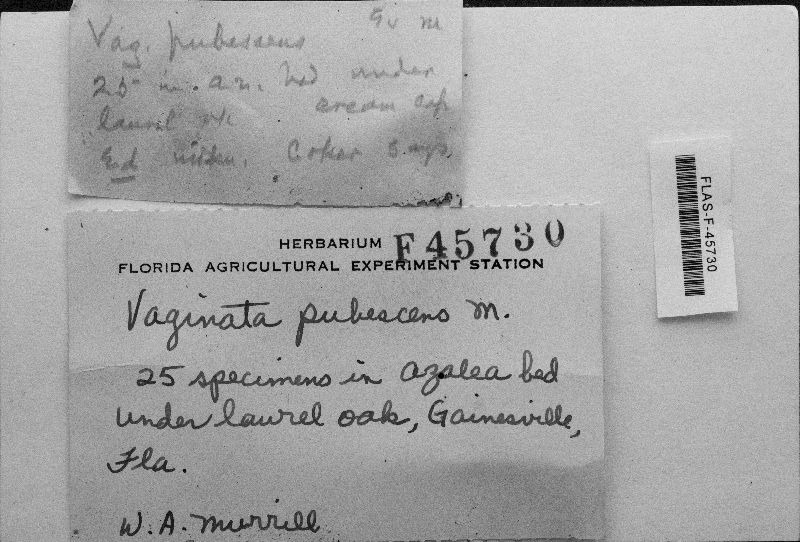 Vag. pubescens Gv m
25 in . az. bed under
laurel cream cap
Ed Coker says
HERBARIUM F45730
FLORIDA AGRICULTURAL EXPERIMENT STATION
Vaginata pubescens M.
25 specimens in azalea bed
under laurel oak, Gainesville,
Fla.
W. A. Murrill
FLAS-F-45730